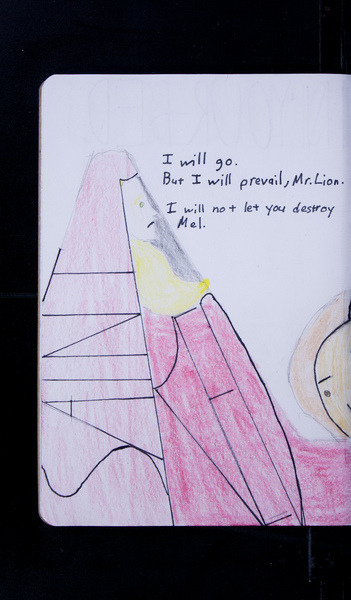 I will go.
But I will prevail, Mr. Lion.
I will not let you destroy
Mel.